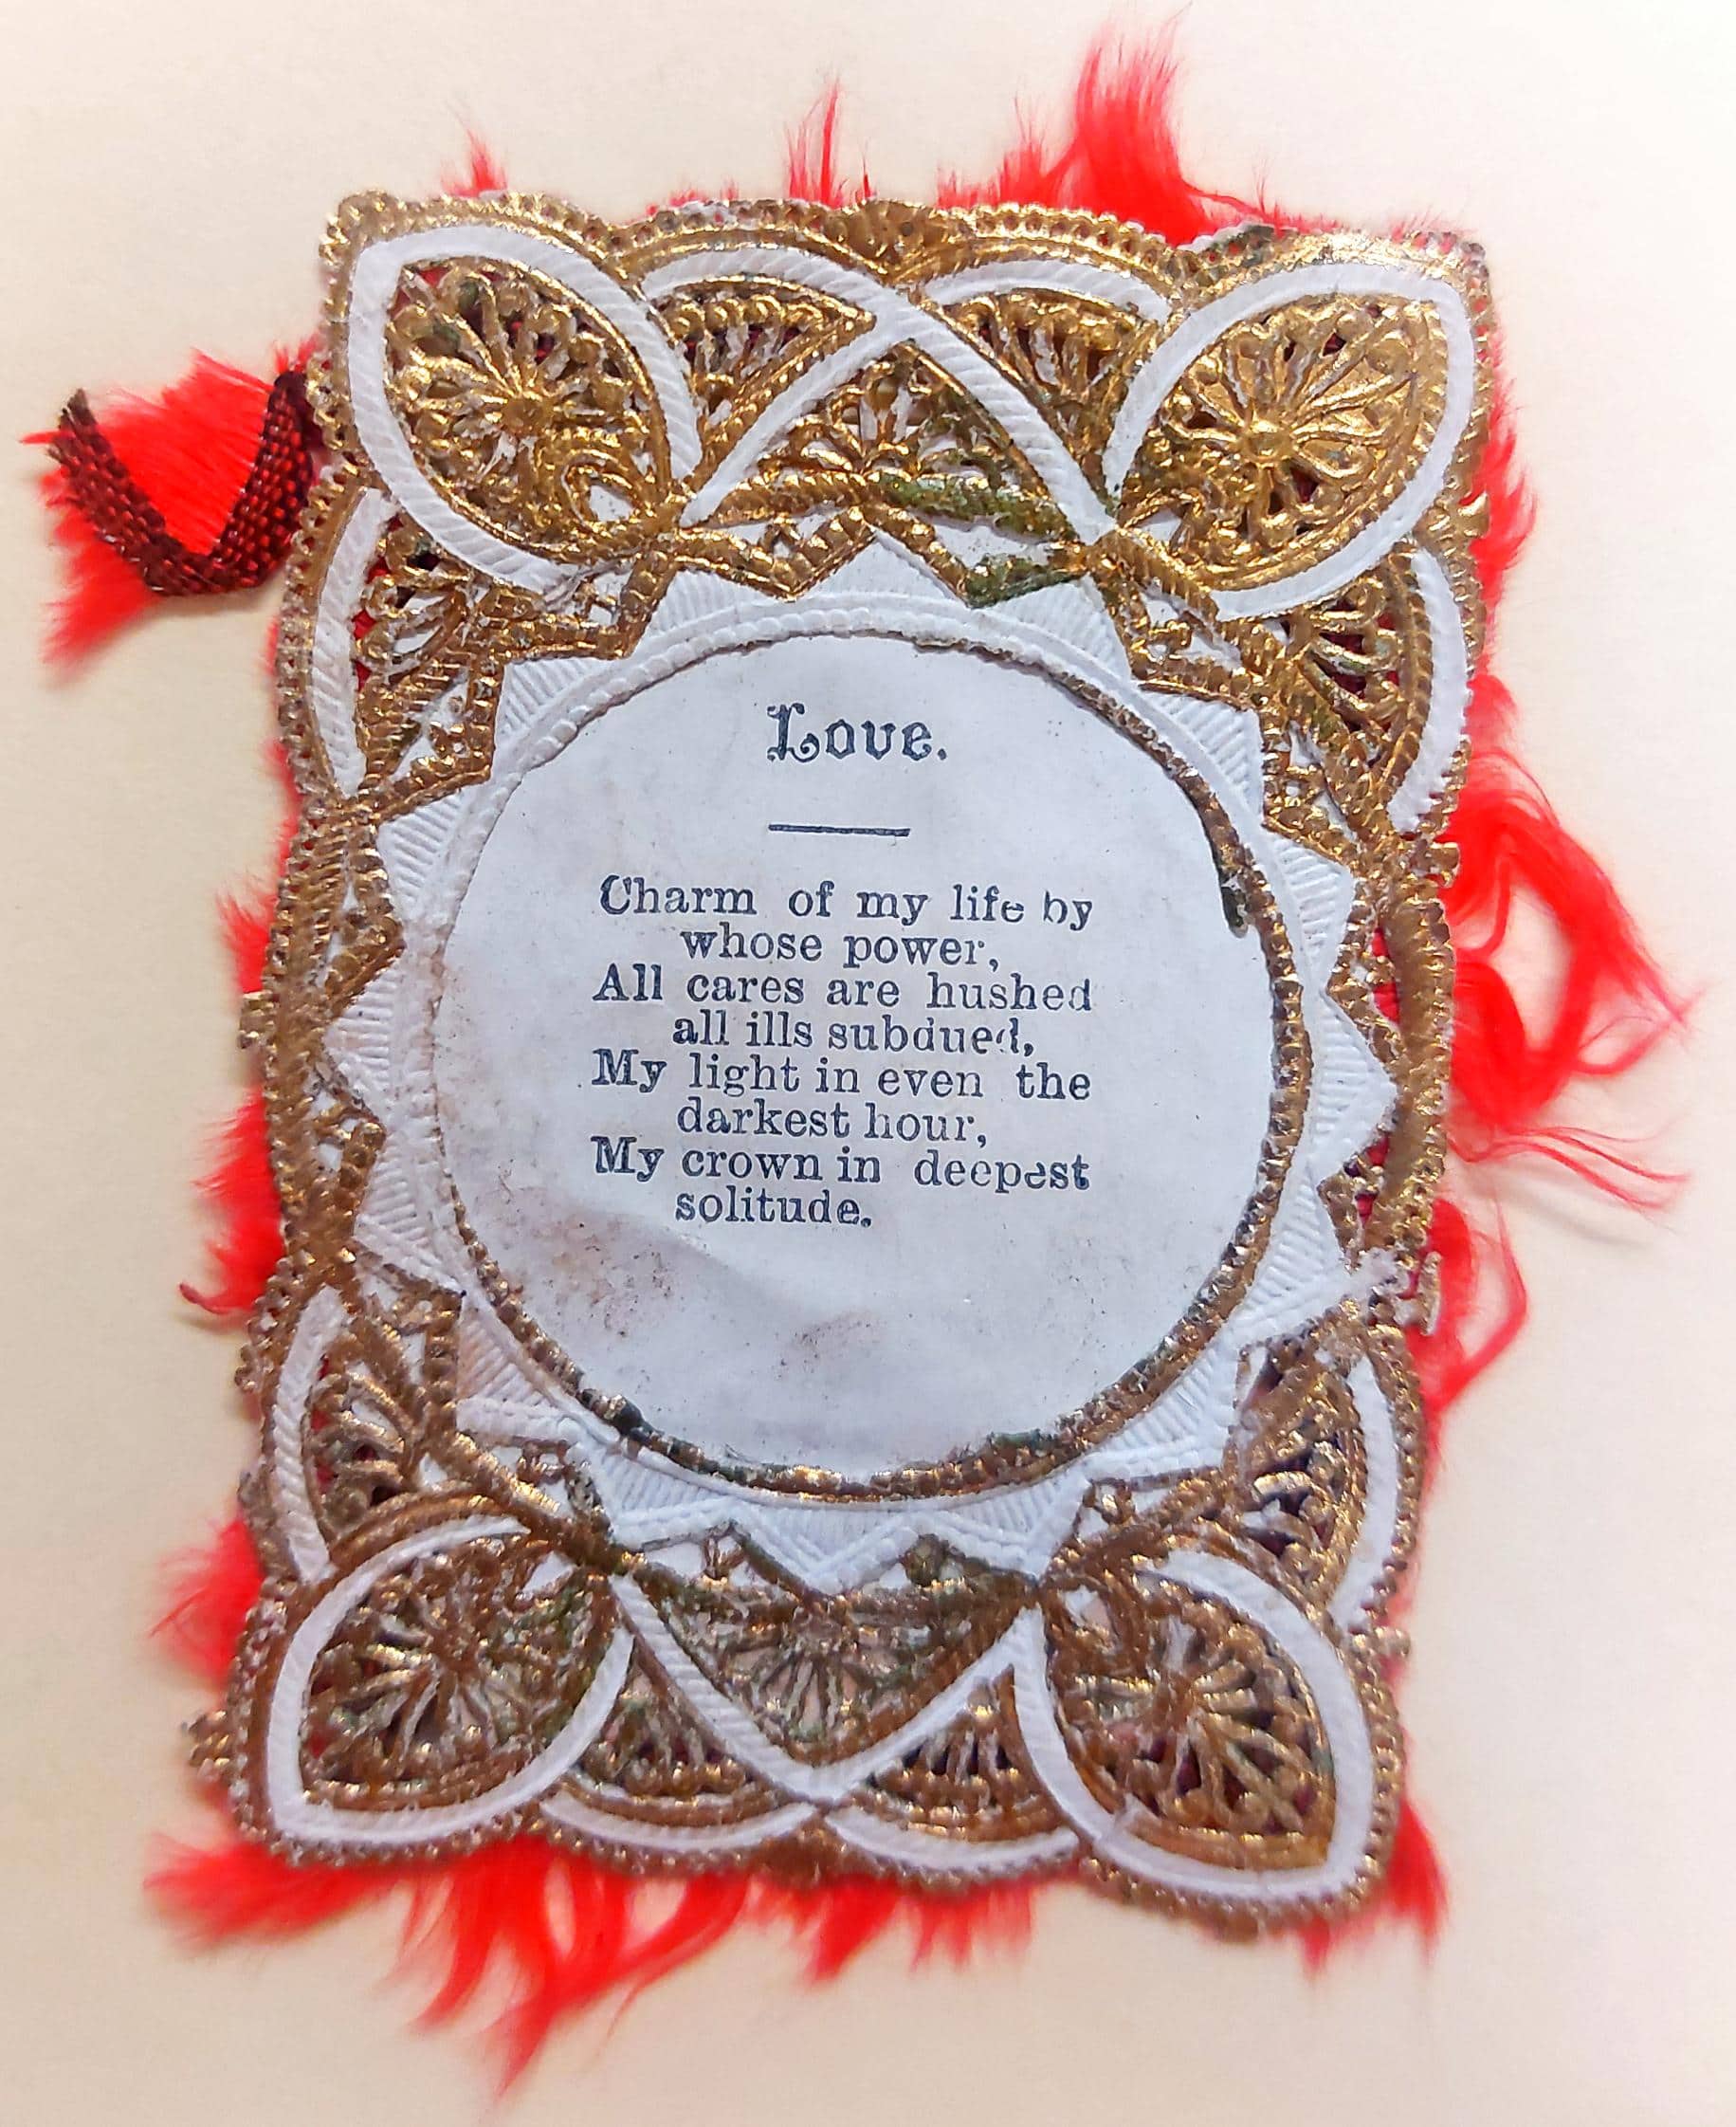 Love.
Charm of my life by
whose power,
All cares are hushed
all ills subdued,
My light in even the
darkest hour,
My crown in deepest
solitude.